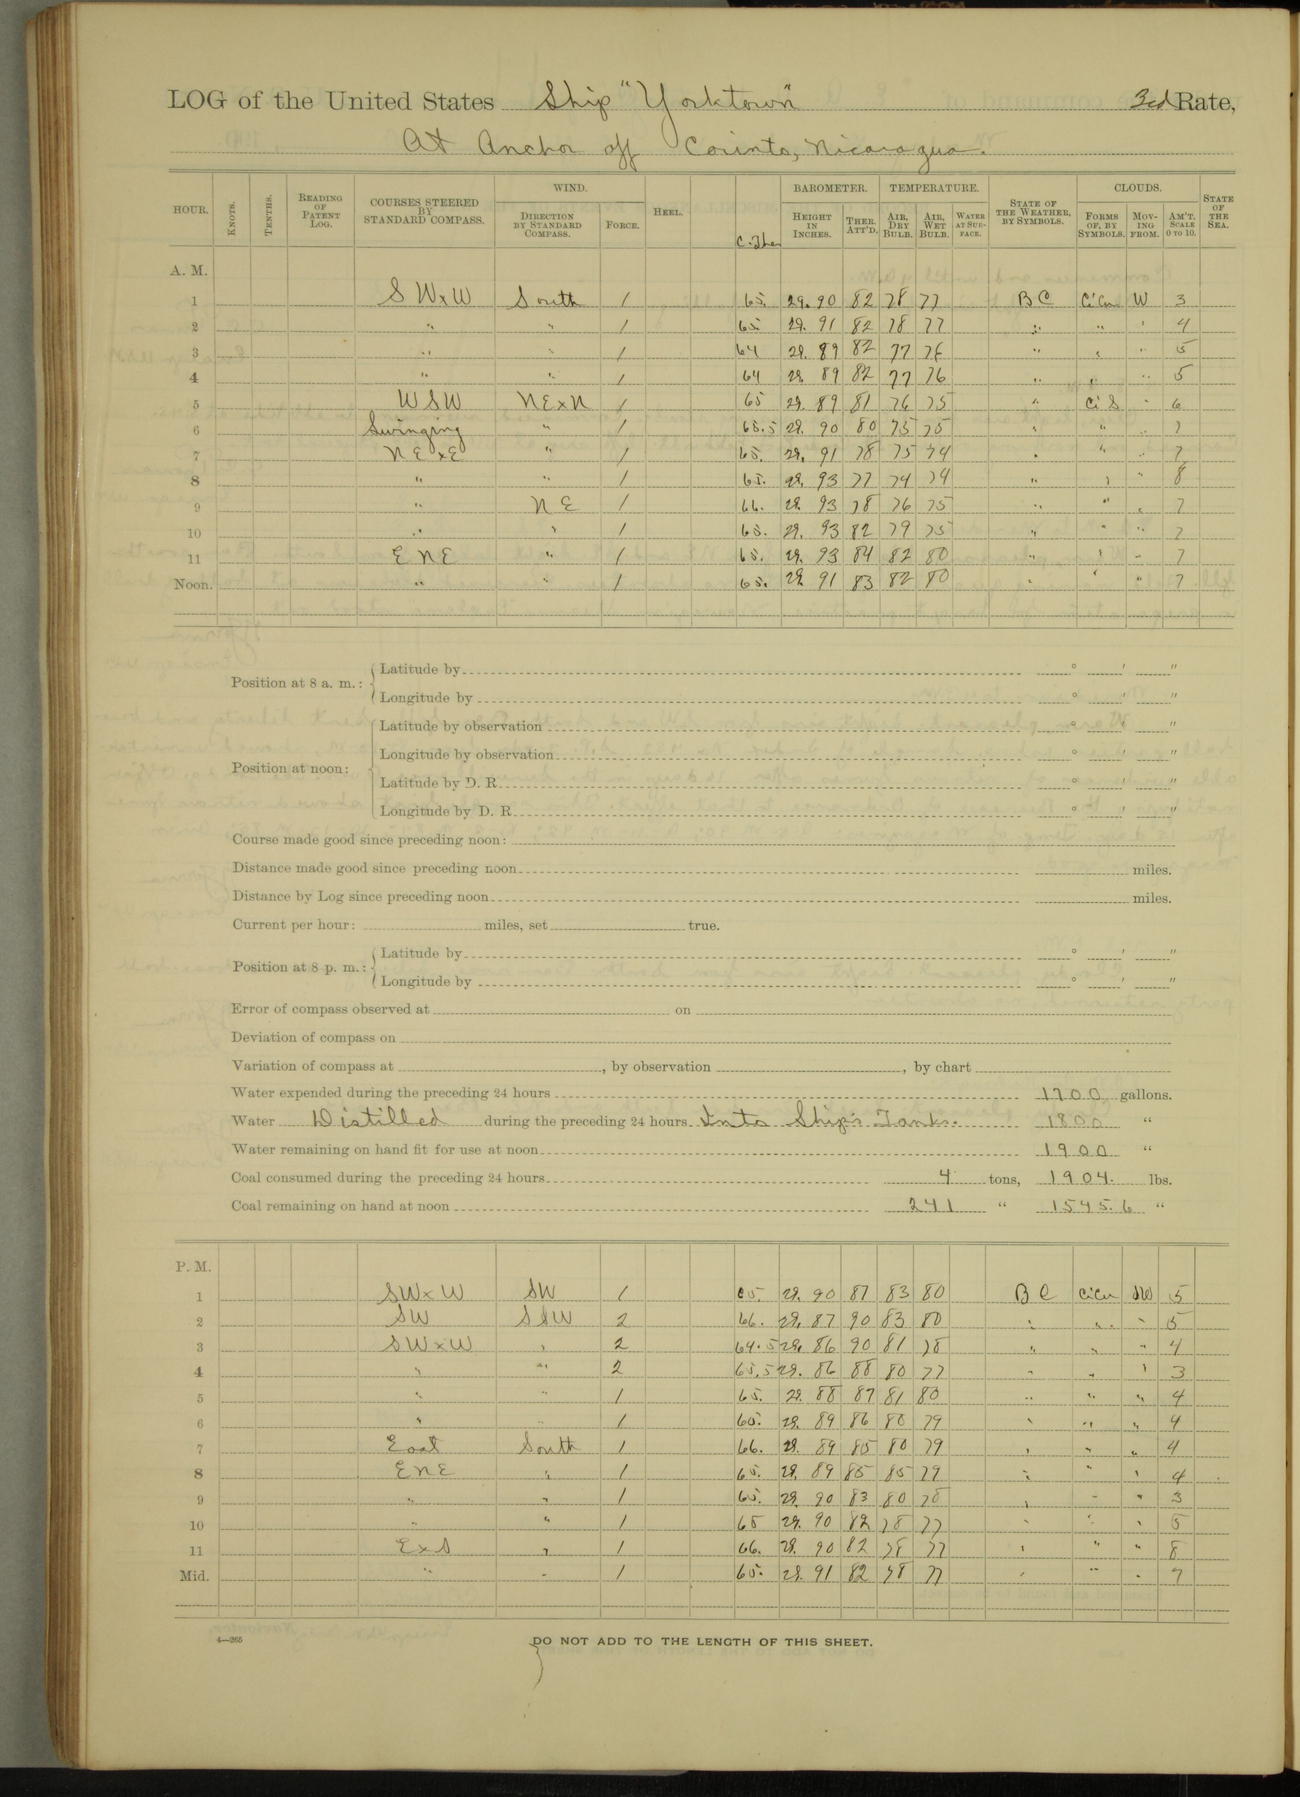 LOG of the United States Ship "Yorktown" 3rd Rate,
At Anchor off Corinto, Nicaragua.
HOUR. KNOTS. TENTHS. READING OF PATENT LOG. COURSES STEERED BY STANDARD COMPASS. WIND. DIRECTION BY STANDARD COMPASS. FORCE. HEEL. C. Ther BAROMETER. HEIGHT IN INCHES. THER. ATT'D. TEMPERATURE. AIR, DRY BULB. AIR, WET BULB. WATER AT SURFACE. STATE OF THE WEATHER, BY SYMBOLS. CLOUDS. FORMS OF, BY SYMBOLS. MOVING FROM. AM'T. SCALE 0 TO 10. STATE OF THE SEA.
A. M.
1 SWxW South 1 65. 29.90 82 78 77 BC CiCu W 3
2 " " 1 65 29.91 82 78 77 " " " 4
3 " " 1 64 29.89 82 77 76 " " " 5
4 " " 1 64 29 89 82 77 76 " " " 5
5 WSW NExN 1 65 29.89 81 76 75 " Ci S " 6
6 Swinging " 1 65.5 29.90 80 75 75 " " " 7
7 NExE " 1 65. 29.91 78 75 74 " " " 7
8 " " 1 65. 29.93 77 74 74 " " " 8
9 " NE 1 66. 29.93 78 76 75 " " " 7
10 " " 1 65. 29.93 82 79 75 " " " 7
11 ENE " 1 65. 29.93 84 82 80 " " " 7
Noon. " " 1 65. 29.91 83 82 80 " " " 7
Position at 8 a. m.: Latitude by ° ′ ″
Longitude by ° ′ ″
Position at noon: Latitude by observation ° ′ ″
Longitude by observation ° ′ ″
Latitude by D. R. ° ′ ″
Longitude by D. R. ° ′ ″
Course made good since preceding noon:
Distance made good since preceding noon miles.
Distance by Log since preceding noon miles.
Current per hour: miles, set true.
Position at 8 p. m.: Latitude by ° ′ ″
Longitude by ° ′ ″
Error of compass observed at on
Deviation of compass on
Variation of compass at , by observation , by chart
Water expended during the preceding 24 hours 1700 gallons.
Water Distilled during the preceding 24 hours Into Ship's Tanks. 1800 "
Water remaining on hand fit for use at noon 1900 "
Coal consumed during the preceding 24 hours 4 tons, 1904. lbs.
Coal remaining on hand at noon 241 " 1545.6 "
P. M.
1 SWxW SW 1 65. 29.90 87 83 80 BC CiCu SW 5
2 SW SSW 2 66. 29.87 90 83 80 " " " 5
3 SWxW " 2 64.5 29.86 90 81 78 " " " 4
4 " " 2 65.5 29.86 88 80 77 " " " 3
5 " " 1 65. 29.88 87 81 80 " " " 4
6 " " 1 65. 29.89 86 80 79 " " " 4
7 East South 1 66. 29.89 85 80 79 " " " 4
8 ENE " 1 65. 29.89 85 85 79 " " " 4
9 " " 1 65. 29.90 83 80 78 " " " 3
10 " " 1 65 29.90 82 78 77 " " " 5
11 ExS " 1 66. 29.90 82 78 77 " " " 8
Mid. " " 1 65. 29.91 82 78 77 " " " 7
4—265
DO NOT ADD TO THE LENGTH OF THIS SHEET.